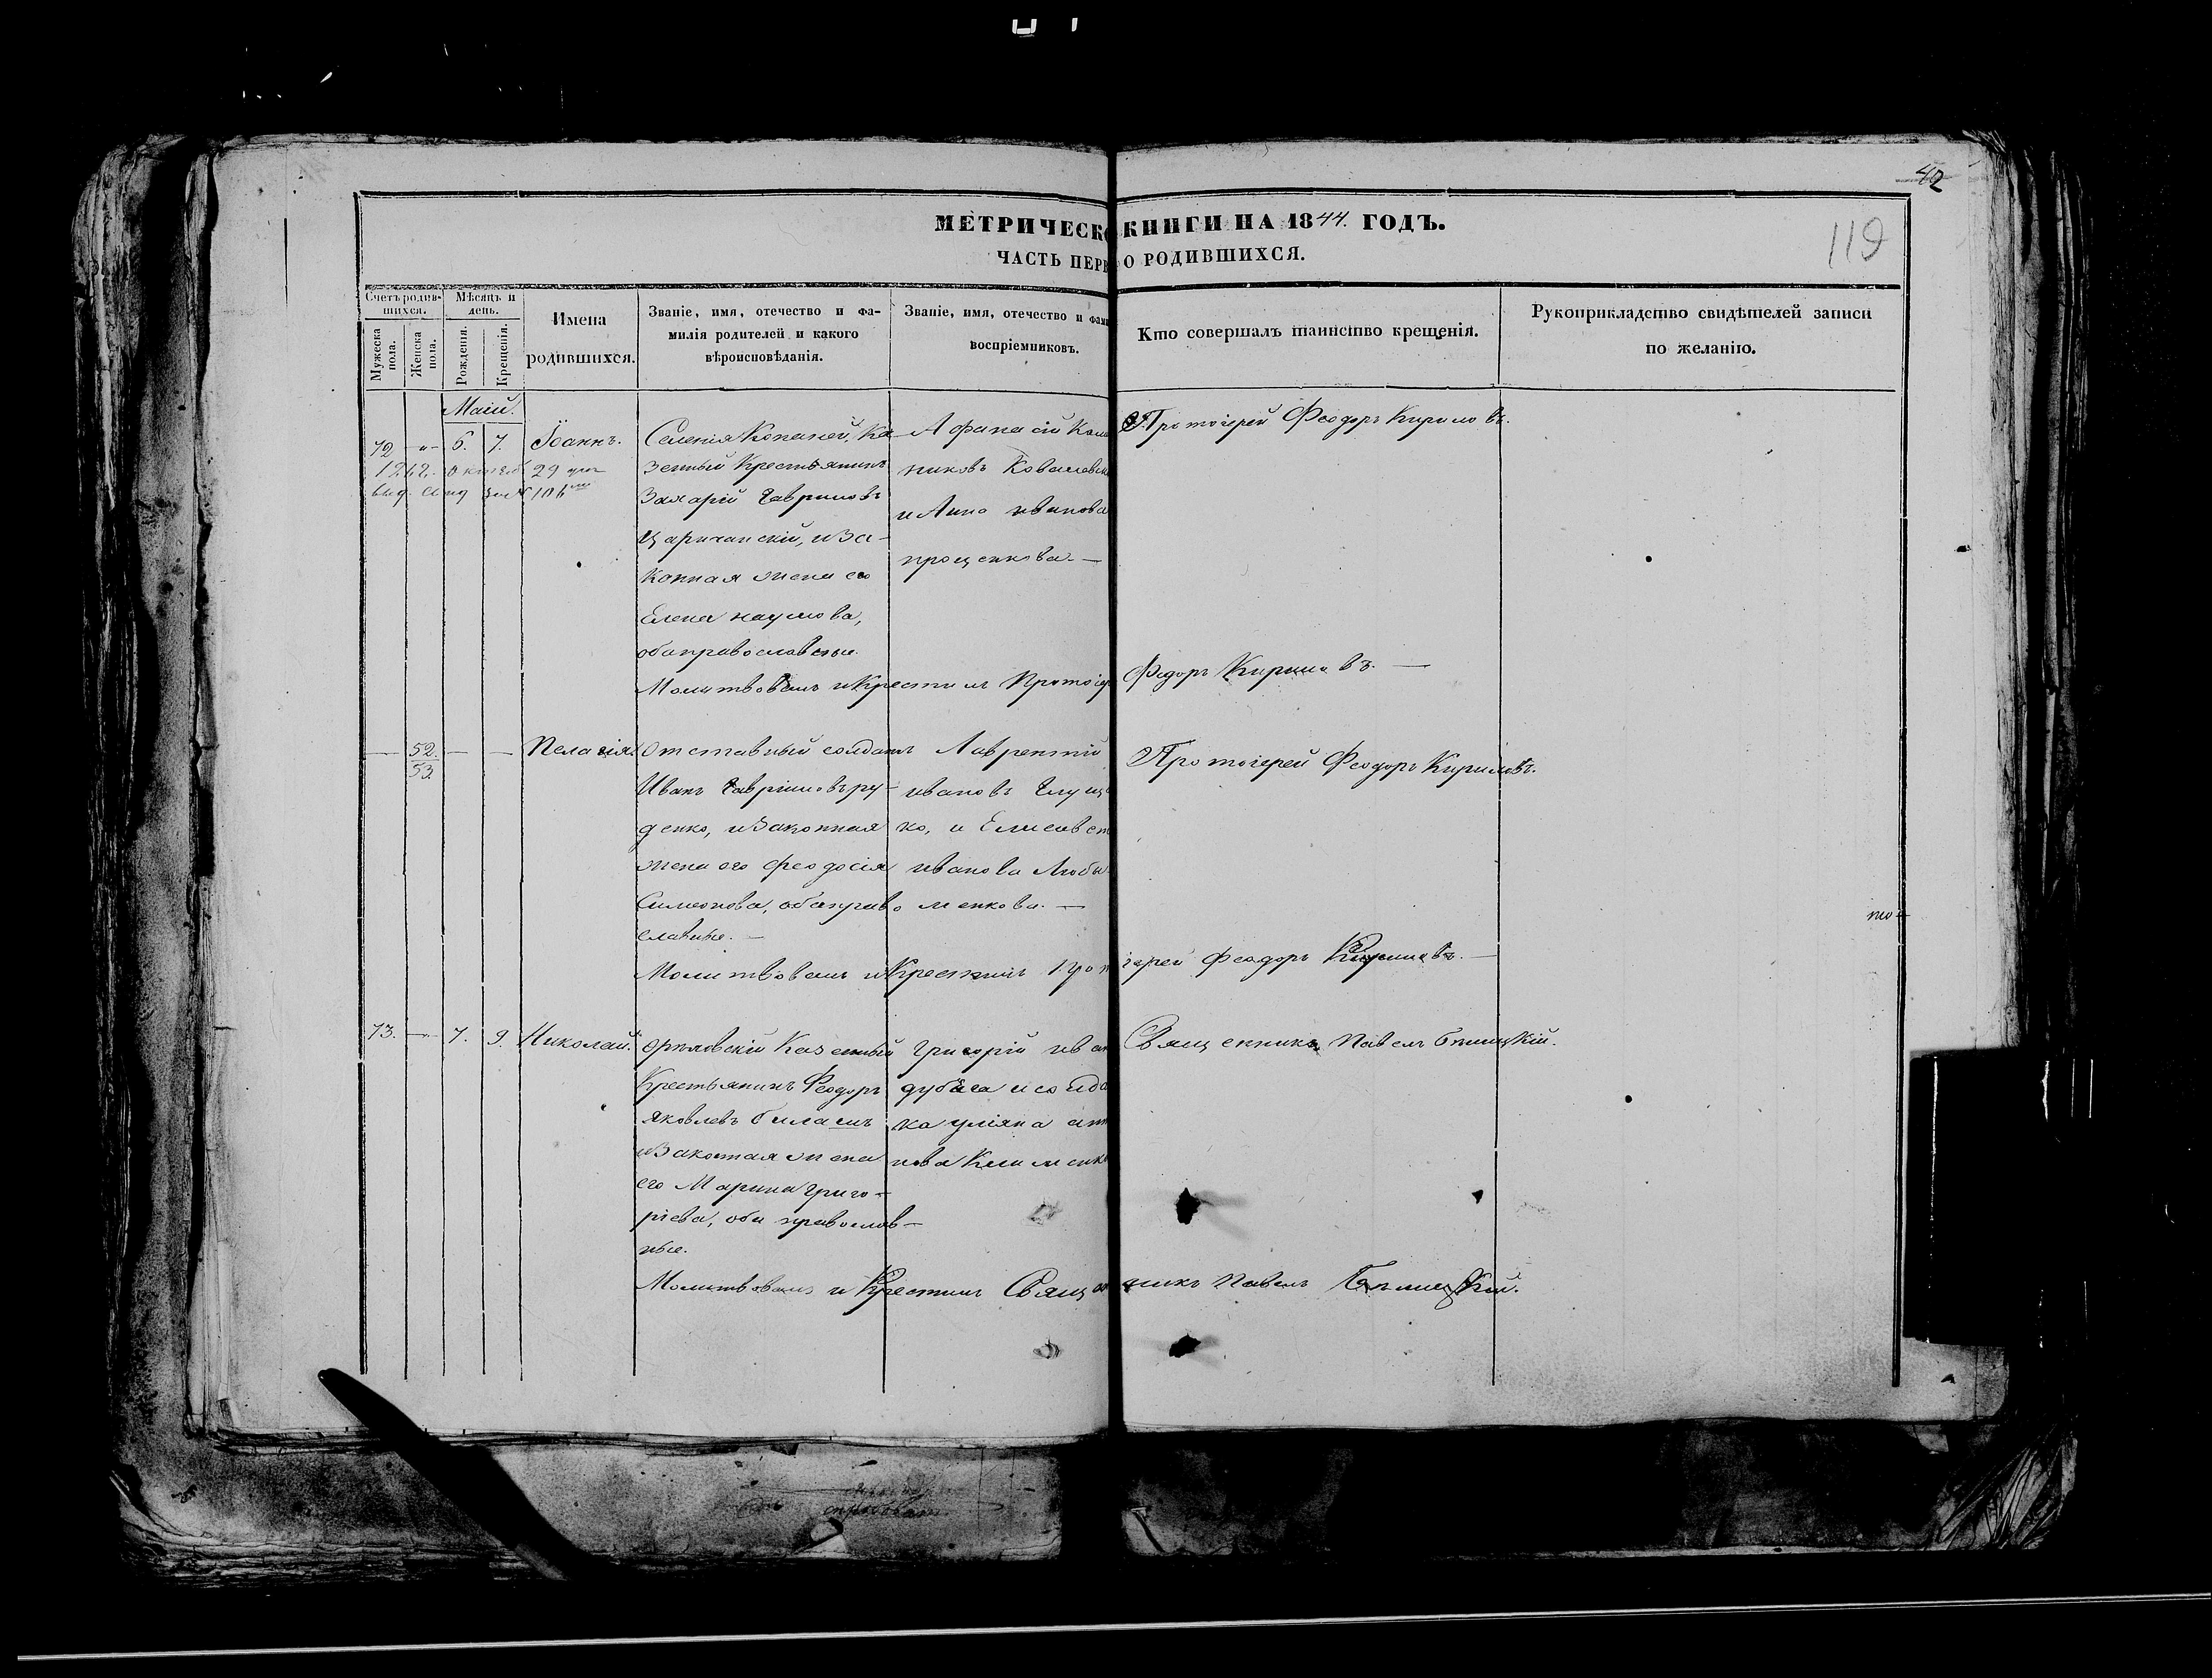 42
119
МЕТРИЧЕСКО КНИГИ НА 1844. ГОДЪ.
ЧАСТЬ ПЕРВ О РОДИВШИХСЯ.
Счетъ родив-
шихся.
Мужеска
пола.
Женска
пола.
Мѣсяцъ и
день.
Рожденія.
Крещенія.
Имена
родившихся.
Званіе, имя, отечество и фа-
милія родителей и какого
вѣроисповѣданія.
Званіе, имя, отечество и фам
воспріемниковъ.
Кто совершалъ таинство крещенія.
Рукоприкладство свидѣтелей записи
по желанію.
Маій.
72 -"- 6. 7. Іоаннъ.
октяб 29 дня
выд.
Селенія Копаней, Ка-
зенный Крестьянинъ
Захарій Гавриловъ
Царичанскій, и за-
конная жена его
Елена наумова,
оба православные.
Афанасій
никовъ Ковалевск
и Анна иванова
проценкова. —
Протоіерей Феодоръ Кириловъ.
Молитвовалъ и Крестилъ Протоіер Федоръ Кириловъ. —
— 52. — — Пелагія.
53.
Отставный солдатъ
Иванъ Гавриловъ ру-
денко, и законная
жена его Феодосія
Симеонова, оба право
славные. —
Лаврентій
ивановъ Глущ
ко, и Елисавет
иванова Любы
менкова. —
Протоіерей Феодоръ Кириловъ.
то
Молитвовалъ и Крестилъ Про іерей Феодоръ Кириловъ. —
73. -"- 7. 9. Николай.
орловскій Казенный
Крестьянинъ Феодоръ
Яковлевъ билашъ
и законная жена
его Марина григо-
ріева, оба православ-
ные.
Григорій иван
дубяга и солда
ка уліяна ант
нова Клименк
Священникъ Павелъ Бѣлицкій.
Молитвовалъ и Крестилъ Свящ нникъ Павелъ Бѣлицкій.